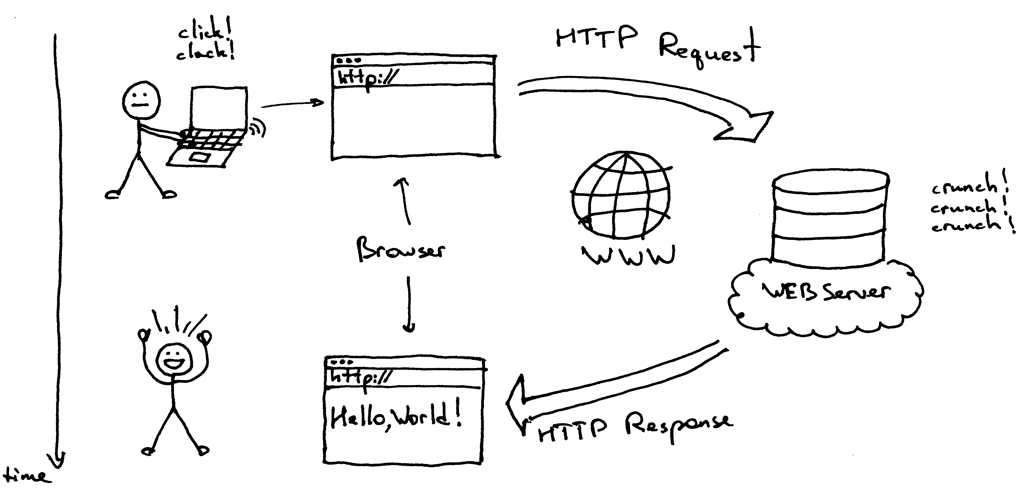 click!
clack!
HTTP Request
http://
crunch!
crunch!
crunch!
WWW
Browser
WEB Server
http://
Hello, World!
HTTP Response
time